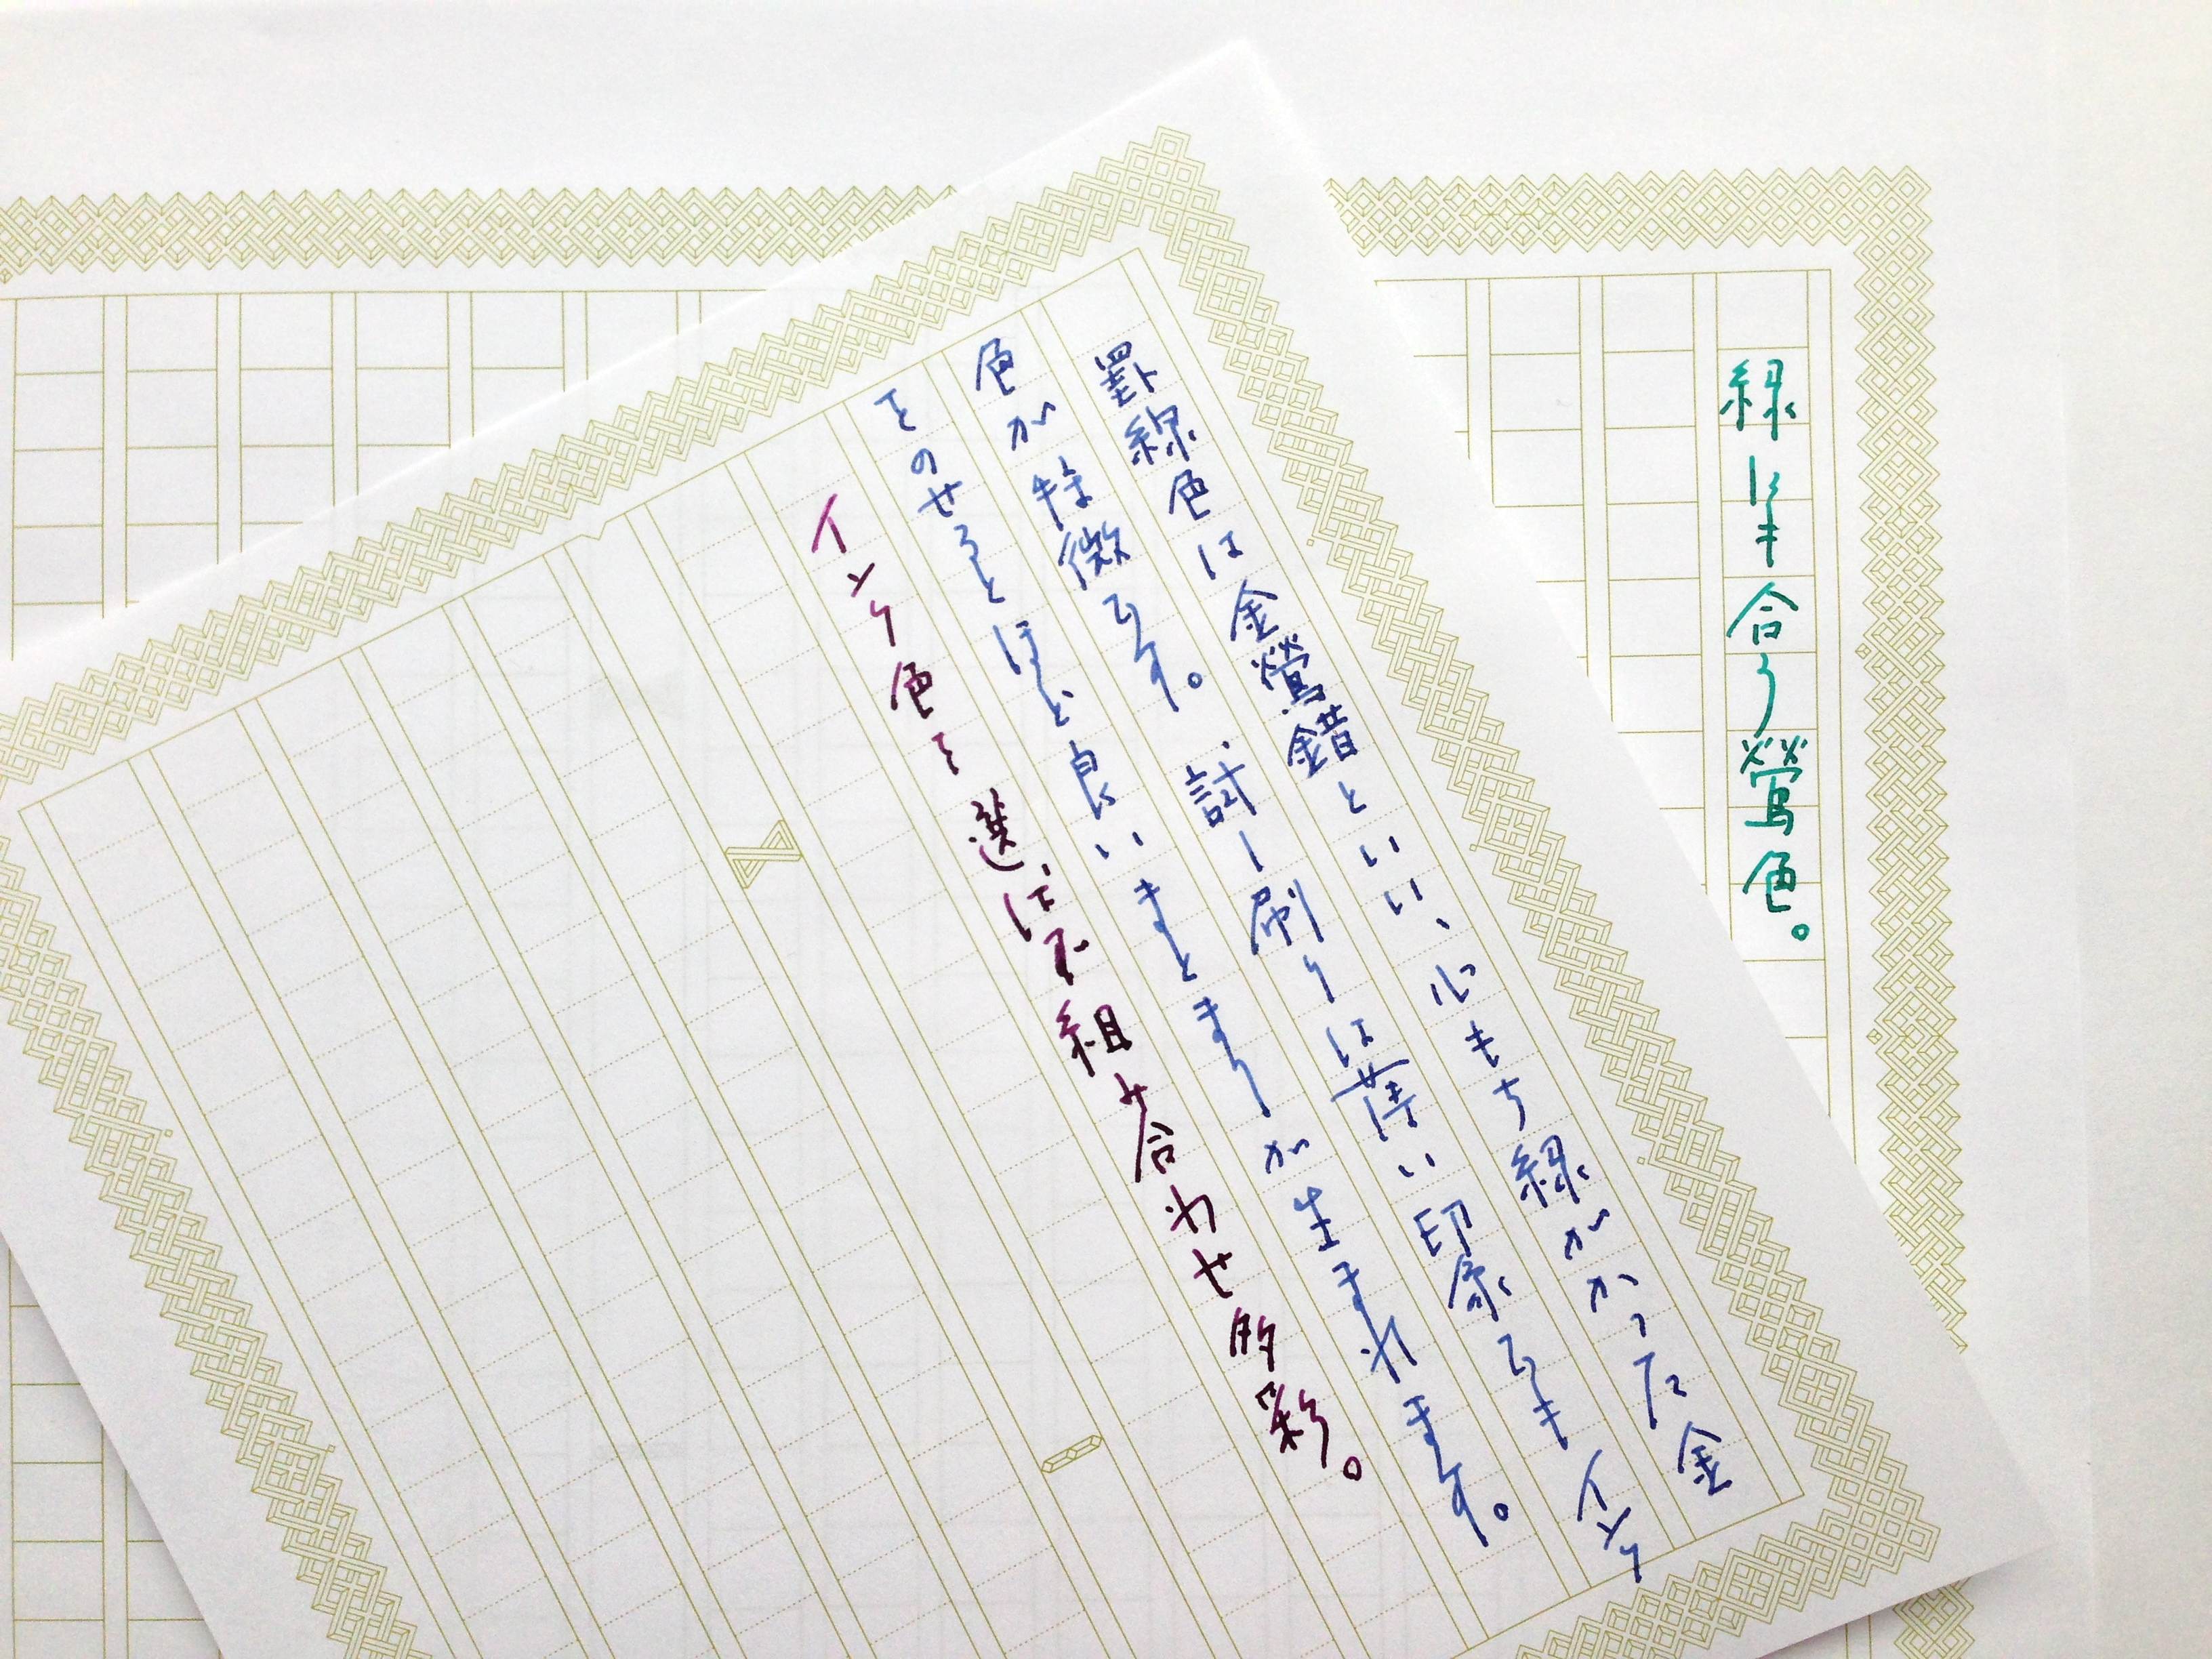 罫線色は金鶯錆といい、心もち緑がかった金
色が特徴です。試し刷りは薄い印象でもインク
をのせるとほど良いまとまりが生まれます。
インク色を選ばず組み合わせ多彩。
緑にも合う鶯色。